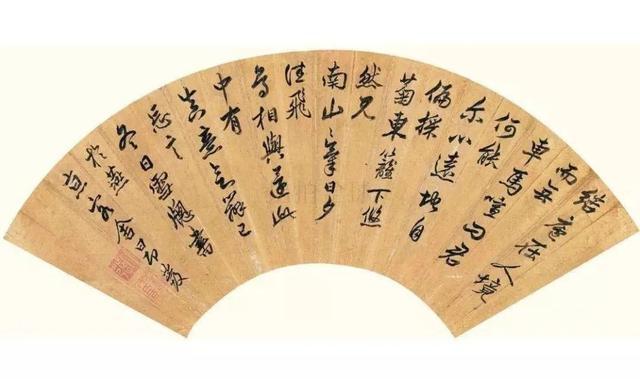 結廬在人境
而無
車馬喧問君
何能
尔心遠地自
偏採
菊東籬下悠
然見
南山々氣日夕
佳飛
鳥相與還此
中有
真意欲辯已
忘言
冬日雪牕書
於燕
客舍